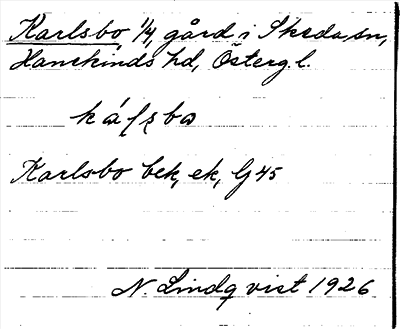 Karlsbo, 1/4, gård i Skeda sn,
Hanekinds hd, Österg.l.
Karlsbo bek, ek, Gj 45
N. Lindqvist 1926